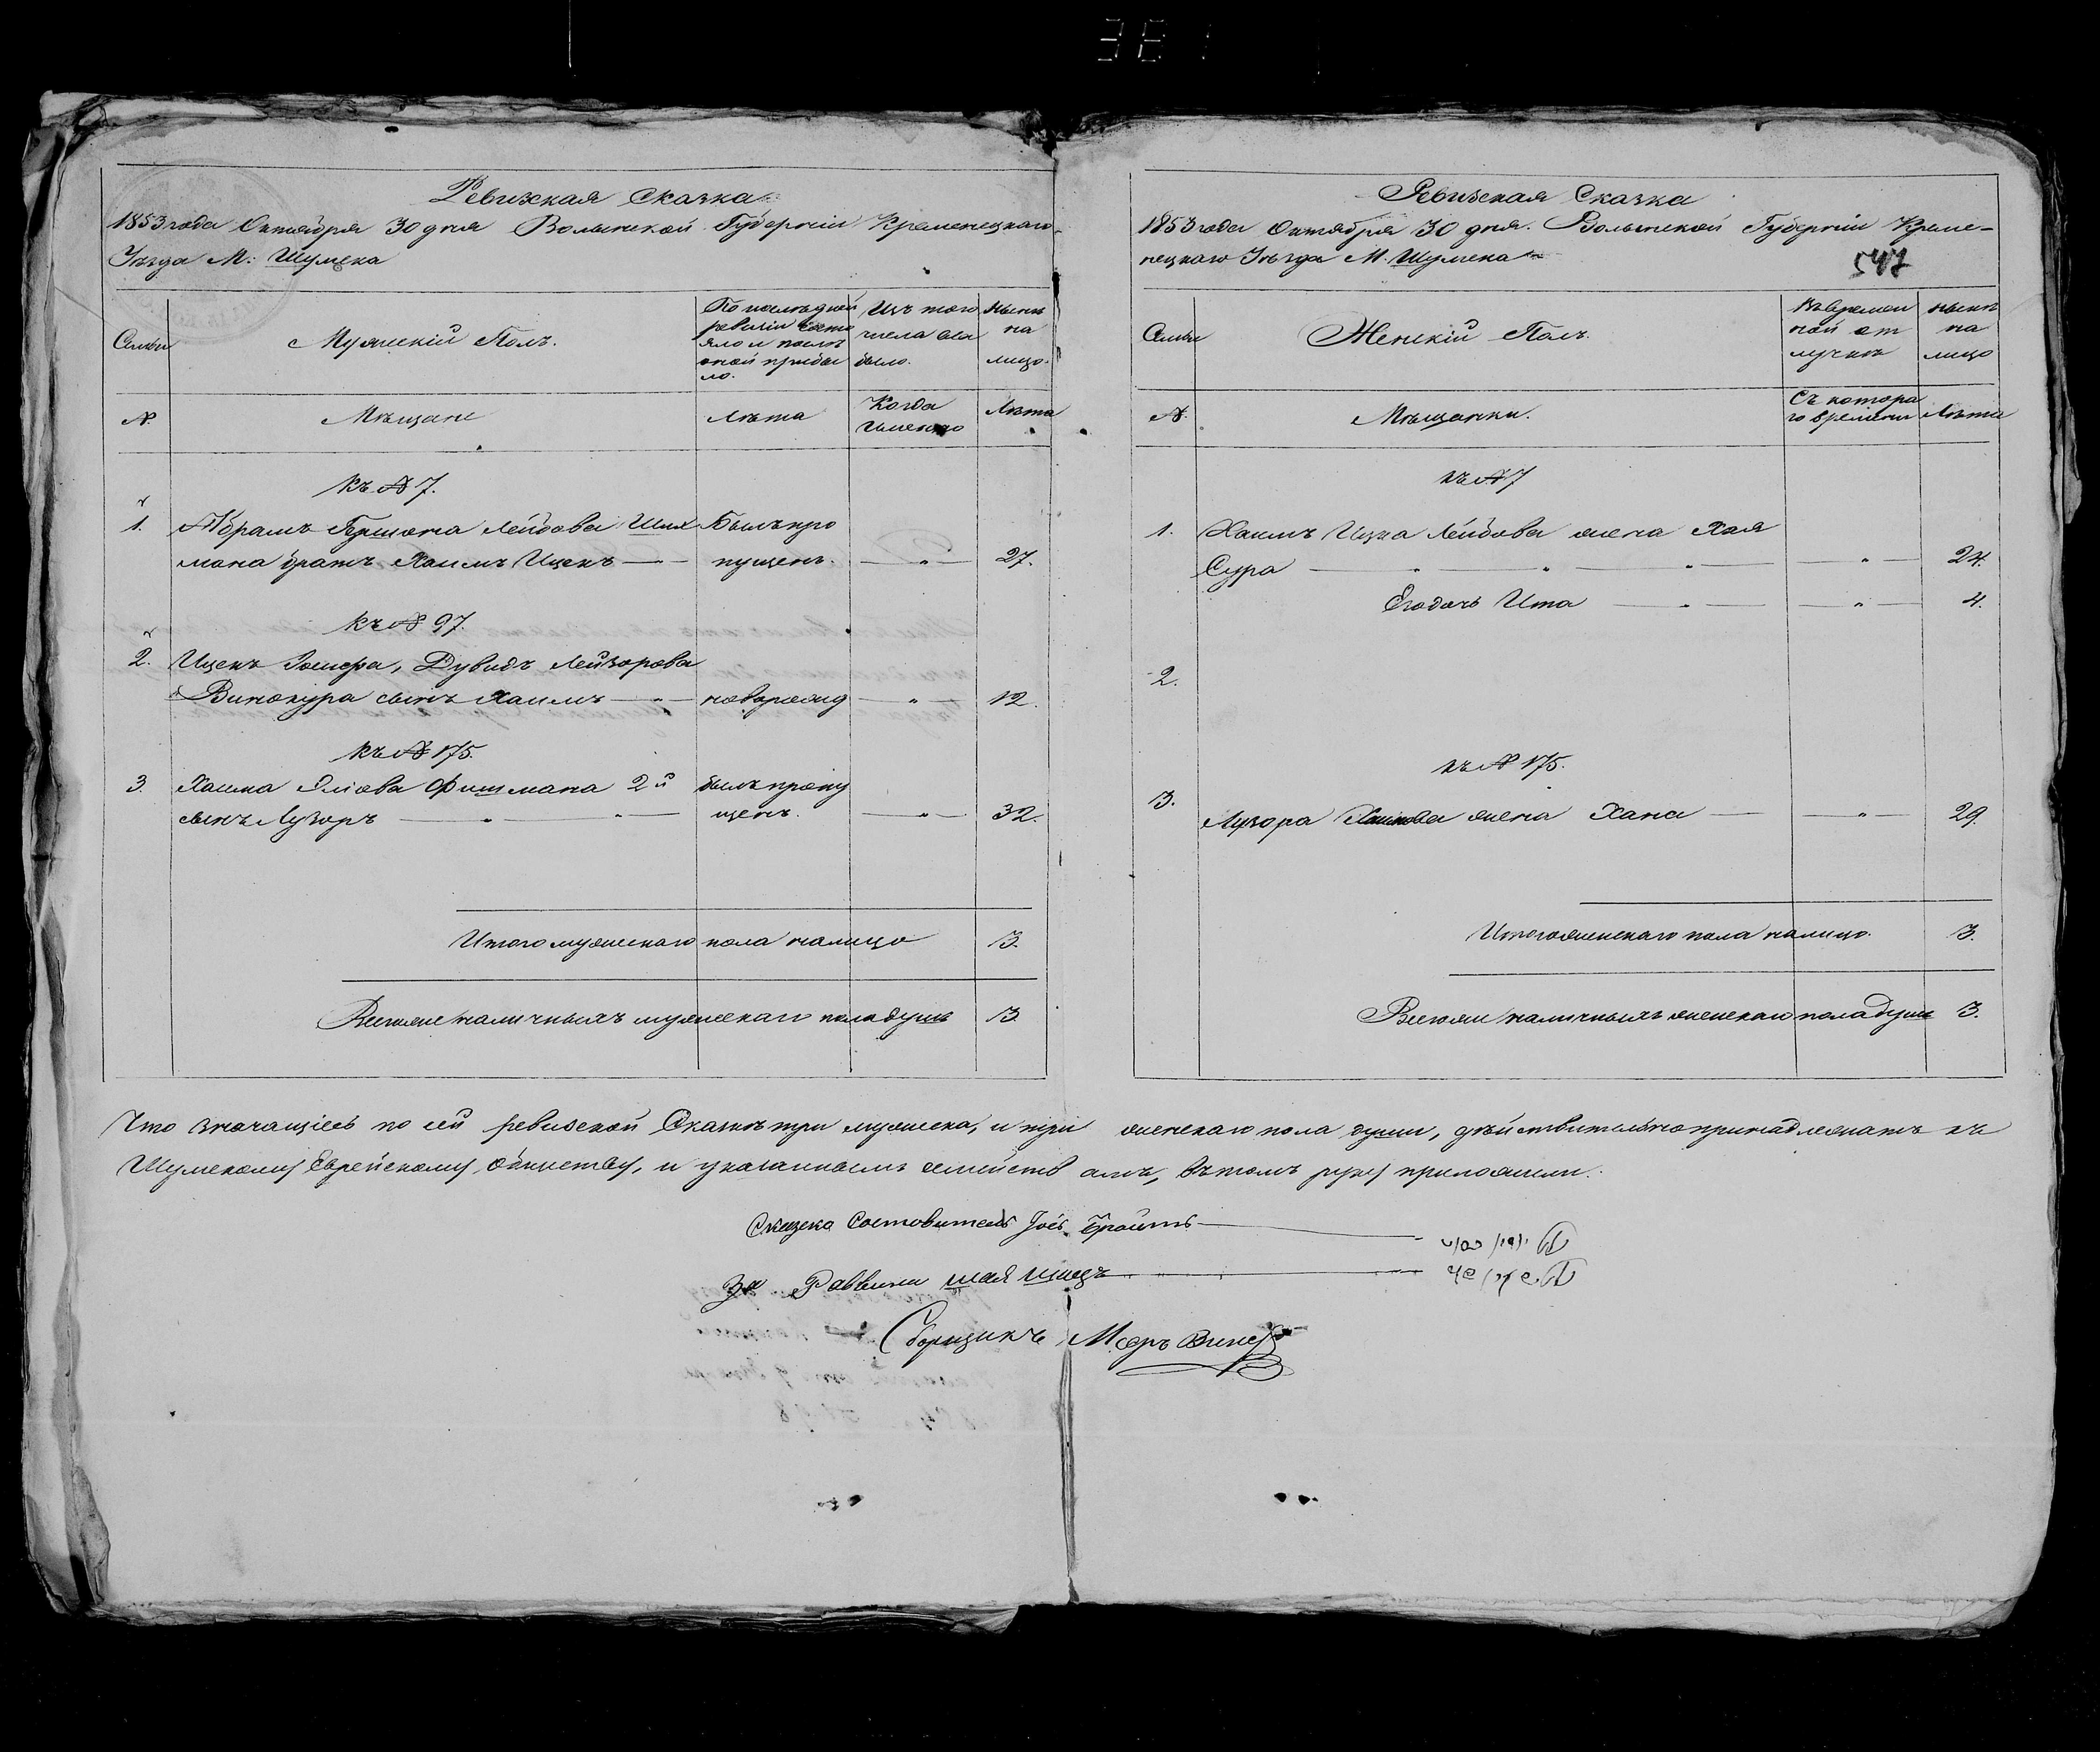 381
Ревизская Сказка
1853 года Октября 30 дня Волынской Губернiи Кременецкаго
Уѣзда М: Шумска
Семьи
Мужескiй Полъ.
По послѣдней
ревизiи состо
яло и послѣ
оной прибы
ло.
Изъ того
числа вы
было.
Нынѣ
на
лицо.
№
Мѣщане
Лѣта
Когда
Именно
Лѣта
Къ № 7.
1. Абрамъ Гершона Лейбова Ших Былъ про
мана братъ Хаимъ Ицекъ — пущенъ. — " — 27.
Къ № 97.
2. Ицекъ Iосифа, Дувидъ Лейзорова
Винокура сынъ Хаимъ — " — новорожд — " — 12.
Къ № 175.
3. Хаима Элiова Фишмана 2й былъ пропу
сынъ Лузоръ — " — " — щенъ. — " — 32.
Итого мужескаго пола налицо 3.
Всего же наличныхъ мужескаго пола душъ 3.
Ревизская Сказка
1853 года Октября 30 дня. Волынской Губернiи Креме-
нецкаго Уѣзда М. Шумска
547
Семьи
Женскiй Полъ.
Въ времен
ной от
лучкѣ
нынѣ
на
лицо
№
Мѣщанки.
Съ котора
го времени
Лѣта
Къ № 7
1. Хаимъ Ицка Лейбова жена Хая
Сура — " — " — " — " — 24.
Его дочь Ита — " — " — 4.
2.
Къ № 175.
3.
Лузора Хаимова жена Хана — " — 29.
Итого женскаго пола налицо. 3.
Всего же наличныхъ женскаго пола душъ 3.
Что значащiесь по сей ревизской Сказкѣ три мужеска, и три женскаго пола души, дѣйствительно принадлежатъ къ
Шумскому Еврейскому, обществу, и указаннымъ семействамъ, въ томъ руку приложили.
Сказка Составитель
За Раввина Шая
Сборщикъ Меръ